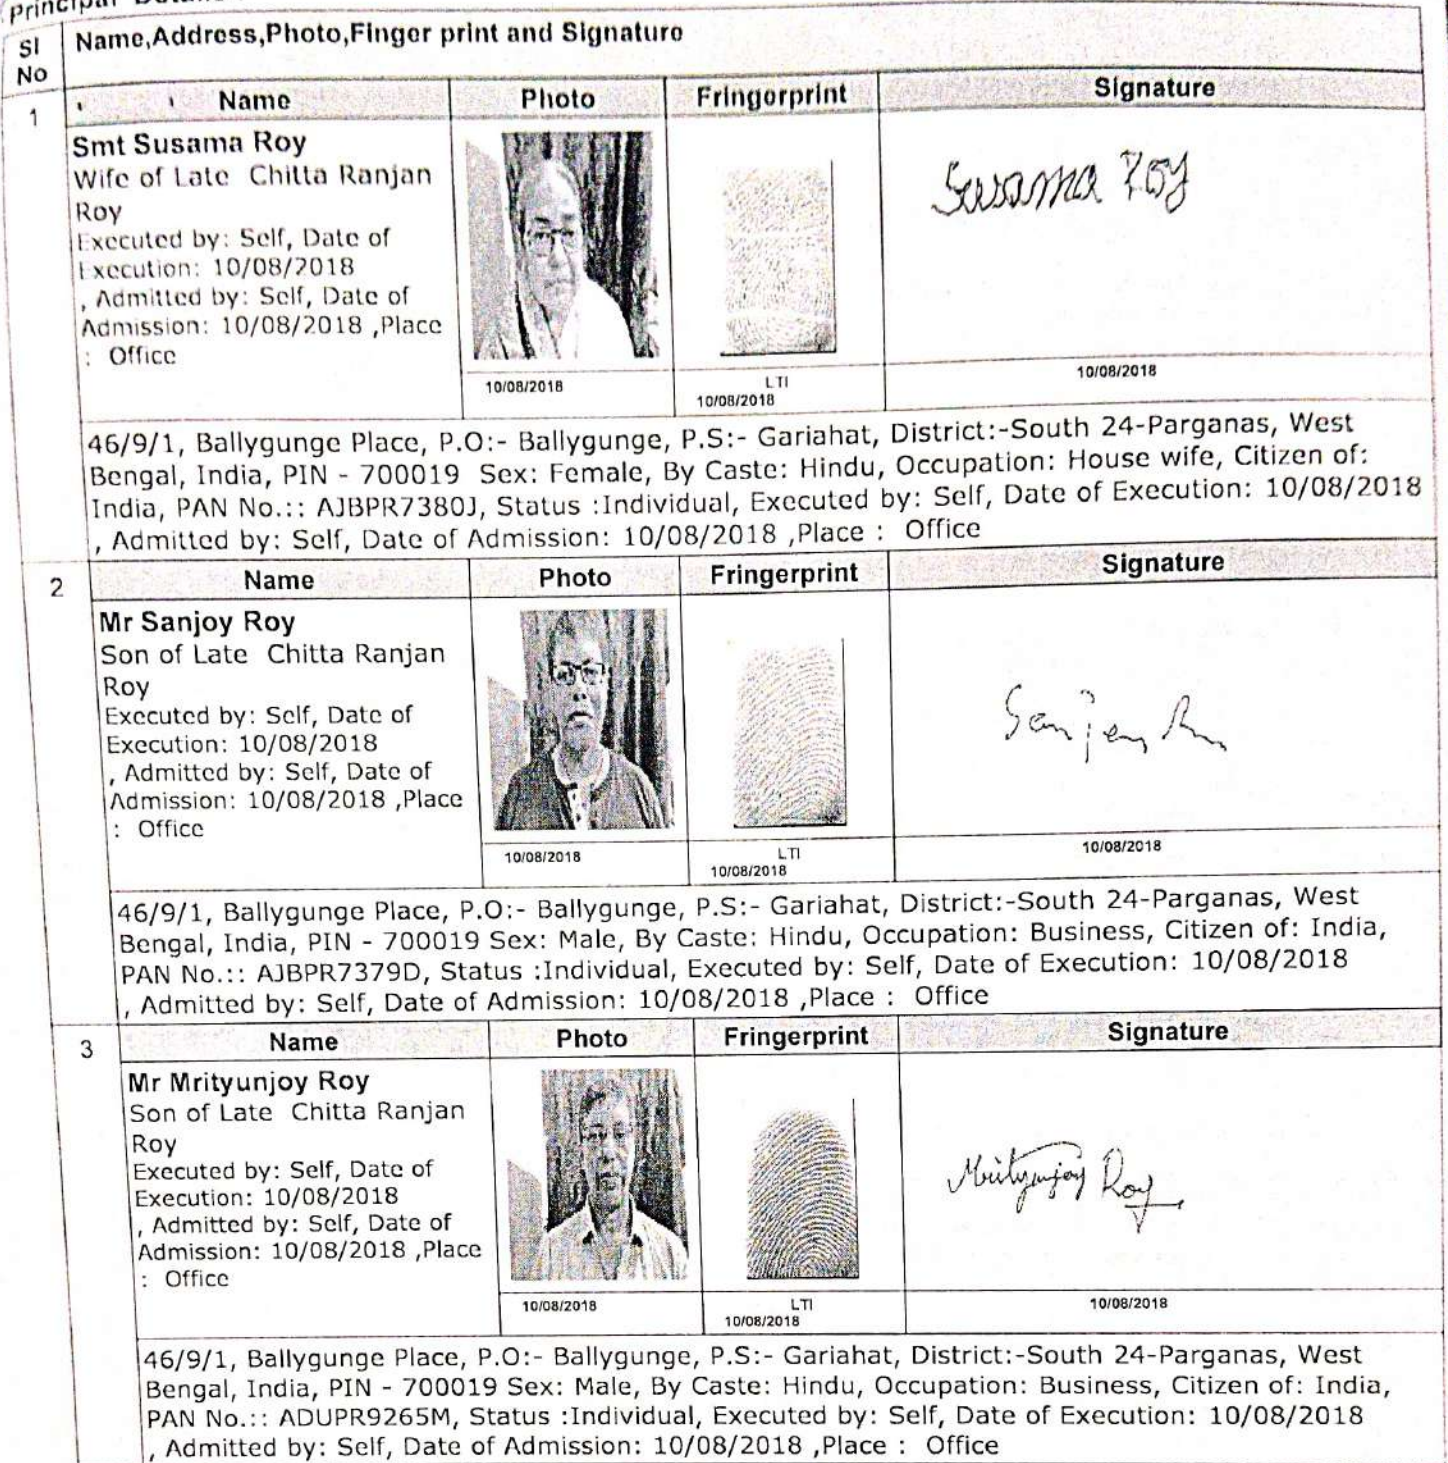 Principal
Sl No
Name,Address,Photo,Finger print and Signature
1
Name Photo Fringerprint Signature
Smt Susama Roy
Wife of Late Chitta Ranjan
Roy
Executed by: Self, Date of
Execution: 10/08/2018
, Admitted by: Self, Date of
Admission: 10/08/2018 ,Place
: Office
Susama Roy
10/08/2018
LTI
10/08/2018
10/08/2018
46/9/1, Ballygunge Place, P.O:- Ballygunge, P.S:- Gariahat, District:-South 24-Parganas, West
Bengal, India, PIN - 700019 Sex: Female, By Caste: Hindu, Occupation: House wife, Citizen of:
India, PAN No.:: AJBPR7380J, Status :Individual, Executed by: Self, Date of Execution: 10/08/2018
, Admitted by: Self, Date of Admission: 10/08/2018 ,Place : Office
2
Name Photo Fringerprint Signature
Mr Sanjoy Roy
Son of Late Chitta Ranjan
Roy
Executed by: Self, Date of
Execution: 10/08/2018
, Admitted by: Self, Date of
Admission: 10/08/2018 ,Place
: Office
10/08/2018
LTI
10/08/2018
10/08/2018
46/9/1, Ballygunge Place, P.O:- Ballygunge, P.S:- Gariahat, District:-South 24-Parganas, West
Bengal, India, PIN - 700019 Sex: Male, By Caste: Hindu, Occupation: Business, Citizen of: India,
PAN No.:: AJBPR7379D, Status :Individual, Executed by: Self, Date of Execution: 10/08/2018
, Admitted by: Self, Date of Admission: 10/08/2018 ,Place : Office
3
Name Photo Fringerprint Signature
Mr Mrityunjoy Roy
Son of Late Chitta Ranjan
Roy
Executed by: Self, Date of
Execution: 10/08/2018
, Admitted by: Self, Date of
Admission: 10/08/2018 ,Place
: Office
Mrityunjoy Roy
10/08/2018
LTI
10/08/2018
10/08/2018
46/9/1, Ballygunge Place, P.O:- Ballygunge, P.S:- Gariahat, District:-South 24-Parganas, West
Bengal, India, PIN - 700019 Sex: Male, By Caste: Hindu, Occupation: Business, Citizen of: India,
PAN No.:: ADUPR9265M, Status :Individual, Executed by: Self, Date of Execution: 10/08/2018
, Admitted by: Self, Date of Admission: 10/08/2018 ,Place : Office